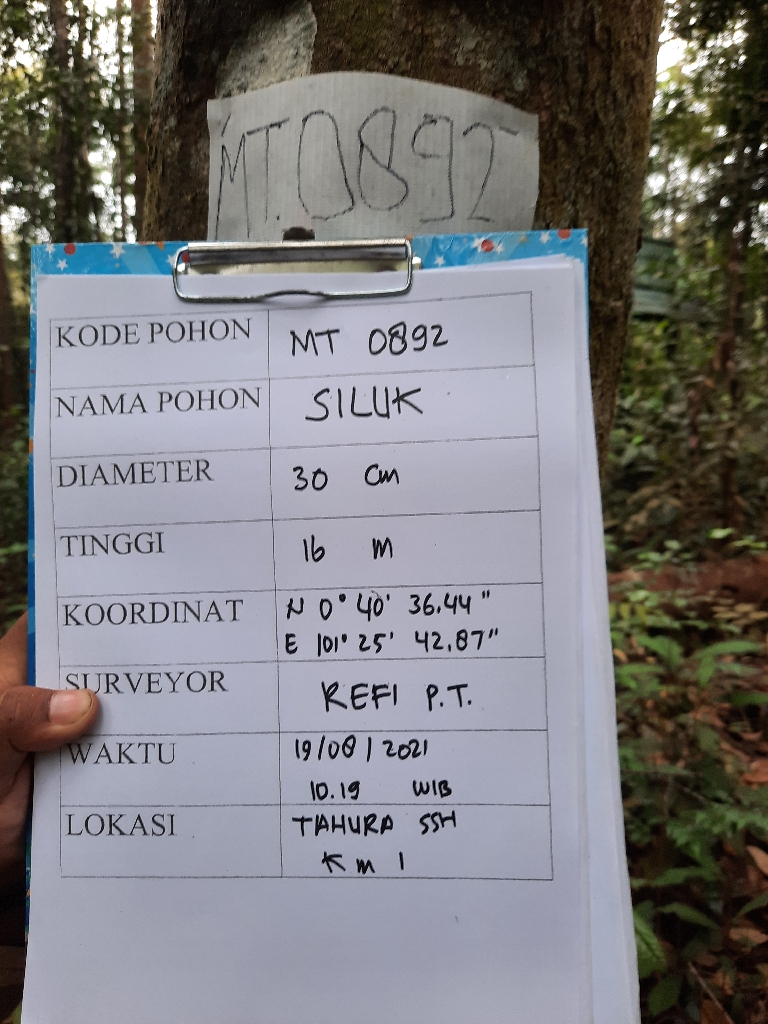 MT.0892
KODE POHON MT 0892
NAMA POHON SILUK
DIAMETER 30 cm
TINGGI 16 m
KOORDINAT N 0° 40' 36.44"
E 101° 25' 42.87"
SURVEYOR REFI P.T.
WAKTU 19/08/2021
10.19 WIB
LOKASI TAHURA SSH
Km 1